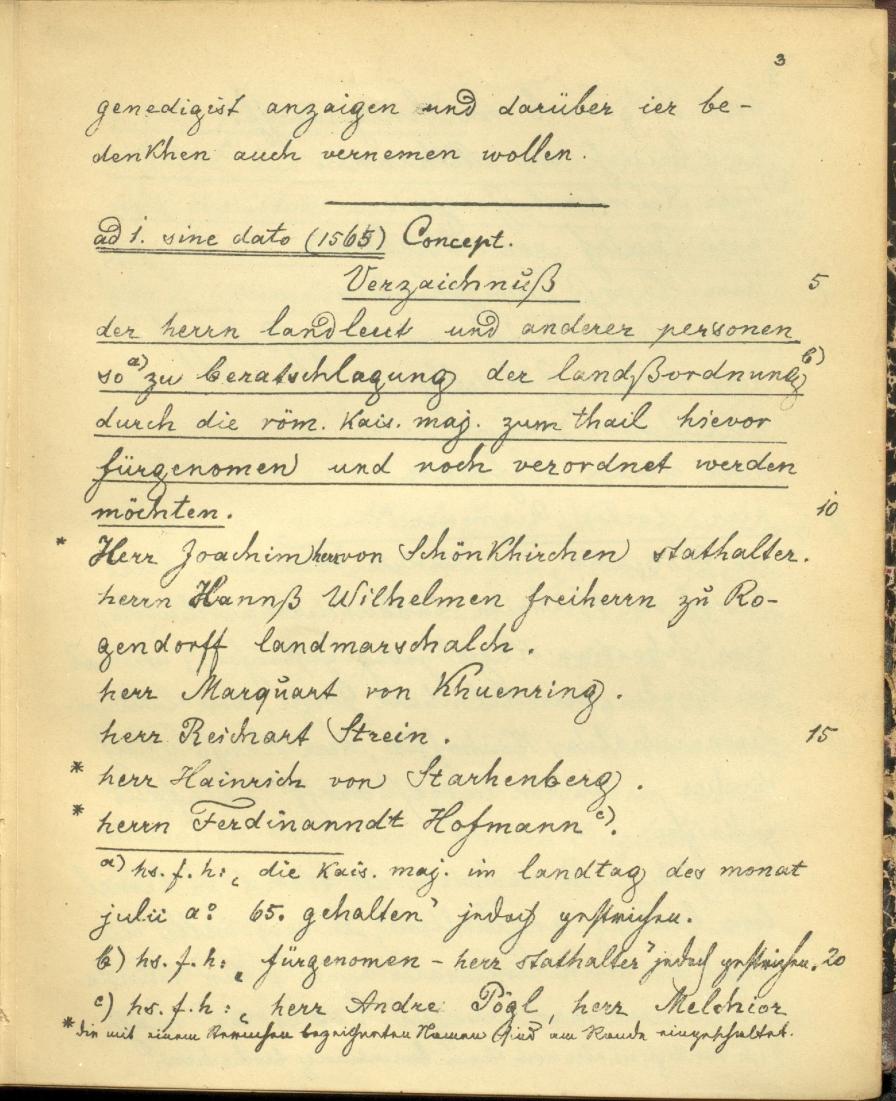 3
genedigist anzaigen und darüber ier be-
denkhen auch vernemen wollen.
ad 1. sine dato (1565) Concept.
Verzaichnuß 5
der herrn landleut und anderer personen
so a) zu beratschlagung der landßordnung b)
durch die röm. kais. maj. zum thail hievor
fürgenomen und noch verordnet werden
möchten. 10
* Herr Joachim herr von Schönkhirchen stathalter.
herrn Hannß Wilhelmen freiherrn zu Ro-
gendorff landmarschalch.
herr Marquart von Khuenring.
herr Reichart Strein. 15
* herr Hainrich von Starhenberg.
* herrn Ferdinanndt Hofmann c).
a) hs. f. h: „die kais. maj. im landtag des monat
julii a° 65. gehalten“ jedoch gestrichen.
b) hs. f. h: „fürgenomen - herr stathalter“ jedoch gestrichen. 20
c) hs. f. h: „herr Andre Pögl, herr Melchior
* die mit einem bezeichneten Namen sind am Rande eingeschaltet.